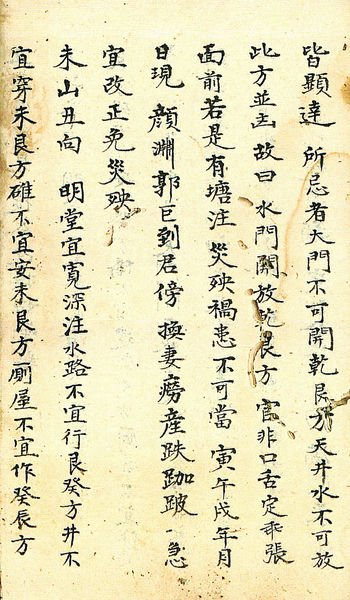 皆顯達 所忌者大門不可開乾艮方天井水不可放
此方並凶 故曰 水門開放乾艮方 官非口舌定乖張
面前若是有塘注 災殃禍患不可當 寅午戌年月
日現 顔淵郭巨到君傍 換妻癆產跌跏跛 急
宜改正免災殃
未山丑向 明堂宜寬深注水路不宜行艮癸方井不
宜穿未艮方碓不宜安未艮方厠屋不宜作癸辰方